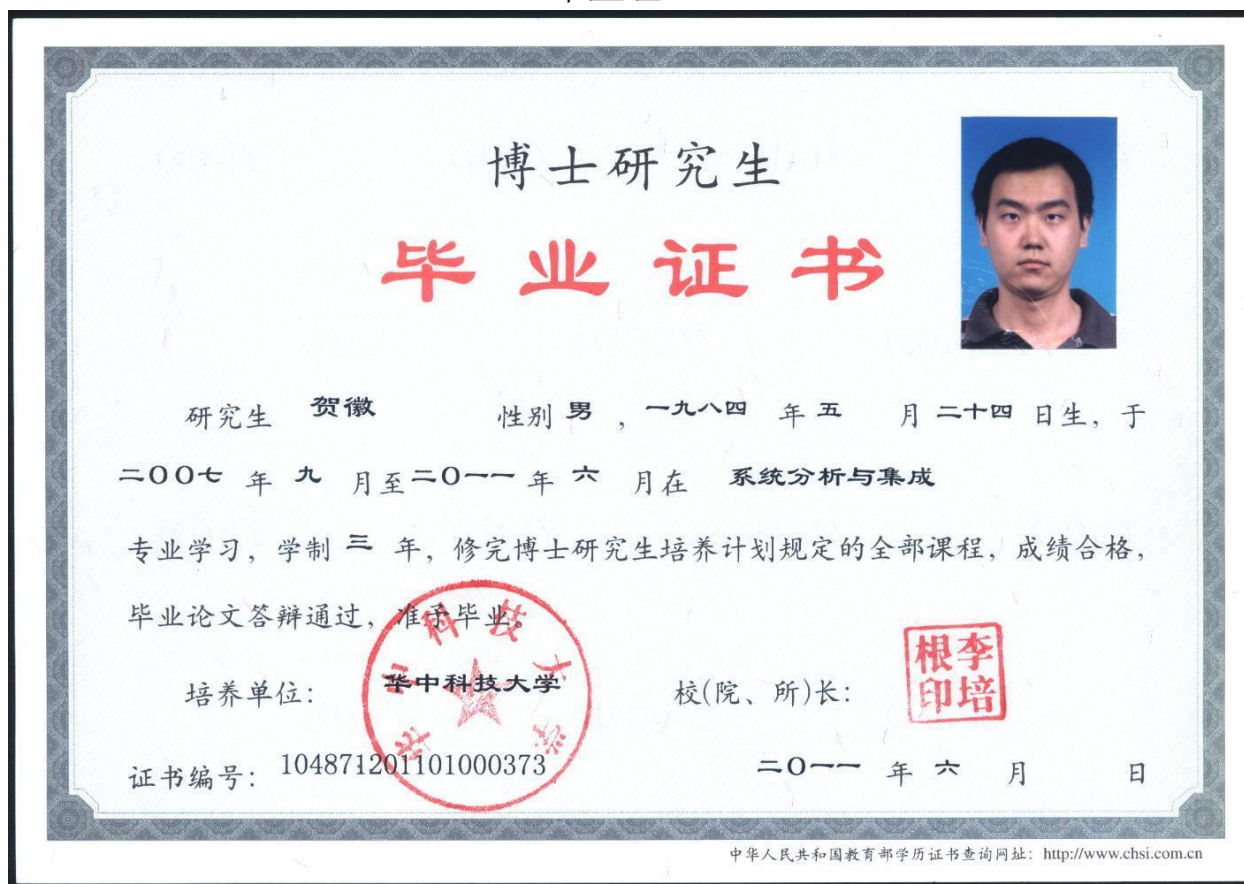 博士研究生
毕业证书
研究生 贺徽 性别 男 , 一九八四 年 五 月 二十四 日生, 于
二〇〇七 年 九 月至 二〇一一 年 六 月在 系统分析与集成
专业学习, 学制 三 年, 修完博士研究生培养计划规定的全部课程, 成绩合格,
毕业论文答辩通过, 准予毕业。
培养单位: 华中科技大学 校(院、所)长:
华中科技大学
李培根印
证书编号: 104871201101000373 二〇一一 年 六 月 日
中华人民共和国教育部学历证书查询网址: http://www.chsi.com.cn